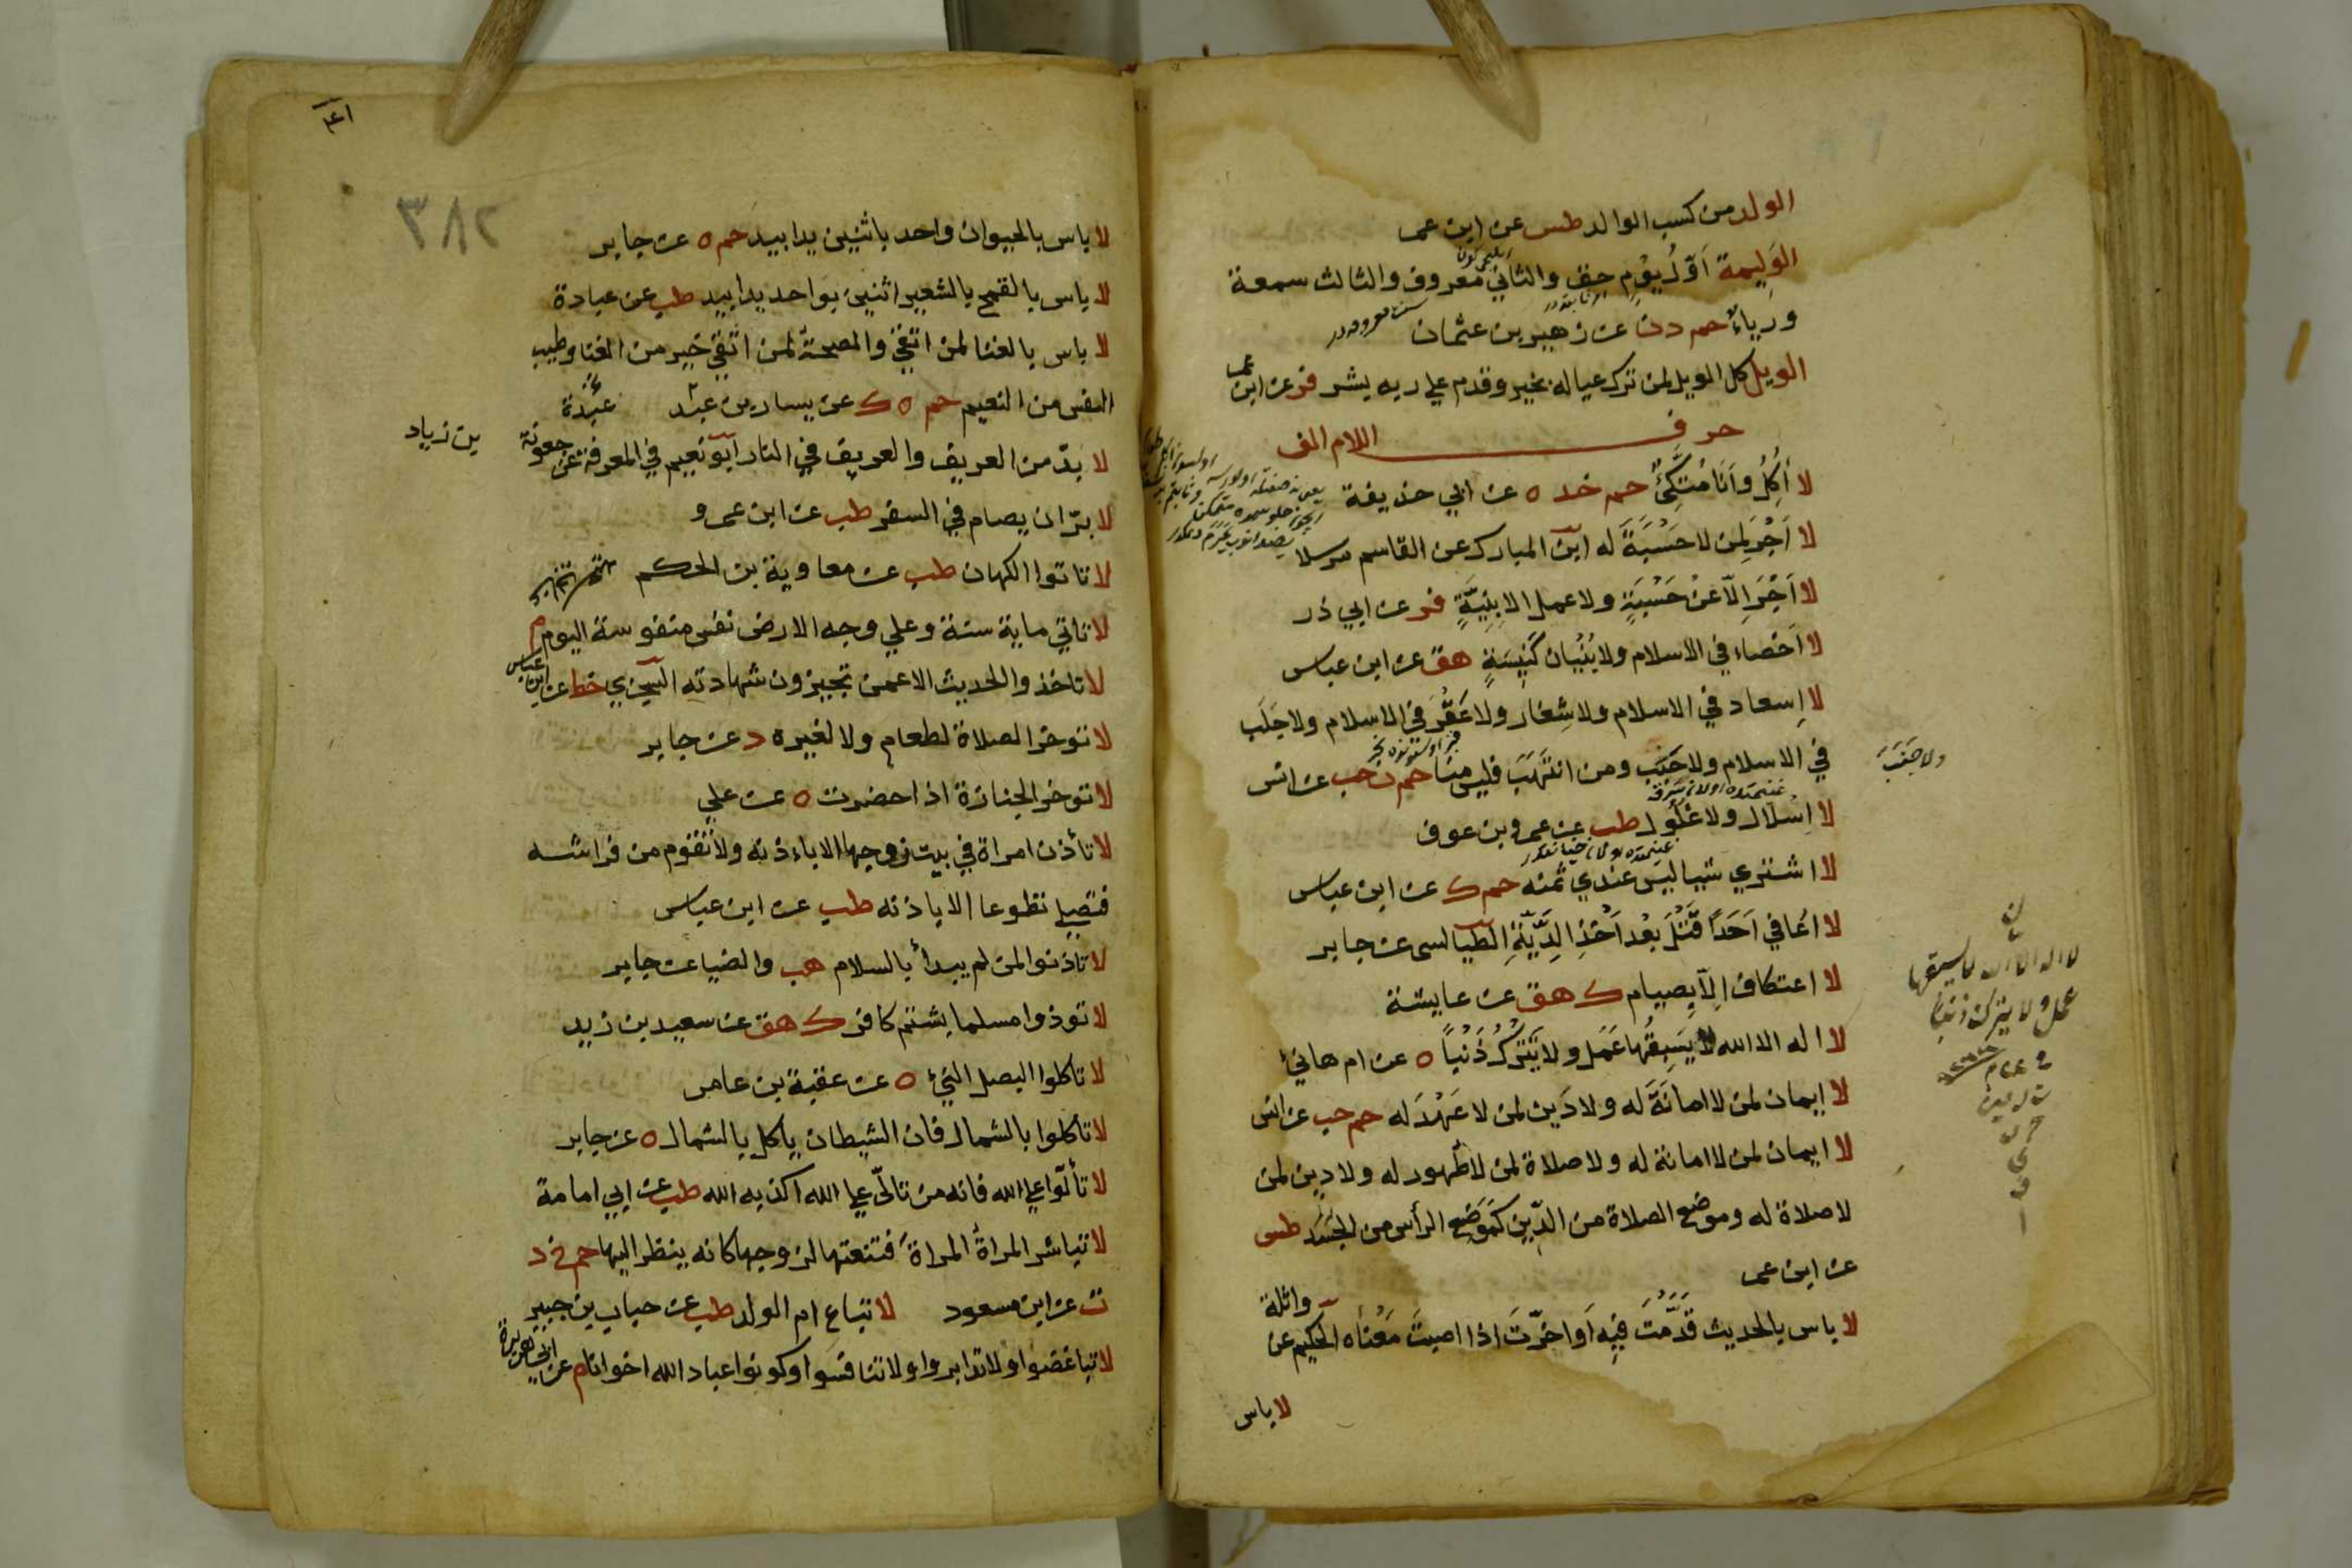 الولد من كسب الوالد طس عن ابن عمر
الوليمة اَوّلُ يَوْمٍ حق والثاني معروف والثالث سمعة
ورياء حم د ن عن زهير بن عثمان
الويل كل الويل لمن ترك عياله بخير وقدم علي ربه بشر فر عن ابن عمر
حرف اللام الف
لا أكُلُ وأَنَا مُتَّكِئٌ حم خد ه عن ابي حذيفة
لا اَجْرَ لِمَن لا حَسْبَةَ له ابن المبارك عن القاسم مرسلا
لا اَجْرَ اِلّا عَنْ حَسْبَةٍ ولا عمل الا بِنِيَّةٍ فر عن ابي ذر
لا اَخْصاء في الاسلام ولا بُنْيان كَنِيسَةٍ هق عن ابن عباس
لا اِسعاد في الاسلام ولا شِغار ولا عَقْرَ في الاسلام ولا جَلَب
في الاسلام ولا جَنَب ومن انتَهَبَ فليس منا حم ن حب عن انس
ولا جَنَبَ
لا اِسْلال ولا غُلُول طب عن عمرو بن عوف
لا اشتري شيا ليس عندي ثمنه حم ك عن ابن عباس
لا اعافي اَحَدًا قَتَلَ بَعْد اَخْذِ الدِّيَةِ الطيالسي عن جابر
لا اعتكاف اِلّا بِصِيام ك هق عن عايشة
لا اله الا الله لا يَسْبِقُها عَمَل ولا تَتْرُكُ ذَنْباً ه عن ام هانئ
لا إيمان لمن لا امانَةَ له ولا دَين لمن لا عَهْدَ له حم حب عن انس
لا ايمان لمن لا امانة له ولا صلاة لمن لا طُهور له ولا دِين لمن
لا صلاة له وموضع الصلاة من الدِّين كَمَوْضِع الرأس من الجَسَد طس
عن ابن عمر
لا باس بالحديث قَدَّمْتَ فِيهِ اَو اخرّتَ اذا اصبتَ مَعْناه الحكيم عن واثلة
لا باس
٣٨٢
لا باس بالحيوان واحد باثنين يدا بيد حم ه عن جابر
لا باس بالقمح بالشعير اثنين بواحد يدا بيد طب عن عبادة
لا باس بالغنا لمن اتقي والصحة لمن اتقي خير من الغنا وطيب
النفس من النعيم حم ه ك عن يسار بن عبد
لا بدّ من العريف والعريف في النار ابو نعيم في المعرفة عن جعونة
بن زياد
لا برّ ان يصام في السفر طب عن ابن عمرو
لا تاتوا الكهان طب عن معاوية بن الحكم
لا تاتي ماية سنة وعلي وجه الارض نفس منفوسة اليوم م
لا تاخذوا الحديث الا عمن تجيزون شهادته السجزي خط عن ابن عباس
لا توخر الصلاة لطعام ولا لغيره د عن جابر
لا توخر الجنازة اذا حضرت ه عن علي
لا تأذن امراة في بيت زوجها الا باءذنه ولا تقوم من فراشه
فتصلي تطوعا الا باذنه طب عن ابن عباس
لا تاذنوا لمن لم يبدأ بالسلام هب والضيا عن جابر
لا توذوا مسلما بشتم كافر ك هق عن سعيد بن زيد
لا تاكلوا البصل النيء ه عن عقبة بن عامر
لا تأكلوا بالشمال فان الشيطان ياكل بالشمال ه عن جابر
لا تألّوا علي الله فانه من تالّي علي الله اكذبه الله طب عن ابي امامة
لا تباشر المراةُ المراةَ فتنعتها لزوجها كانه ينظر اليها حم خ د
ت عن ابن مسعود لا تباع ام الولد طب عن
لا تباغضوا ولا تدابروا ولا تنافسوا وكونوا عباد الله اخوانا م عن ابي هريرة